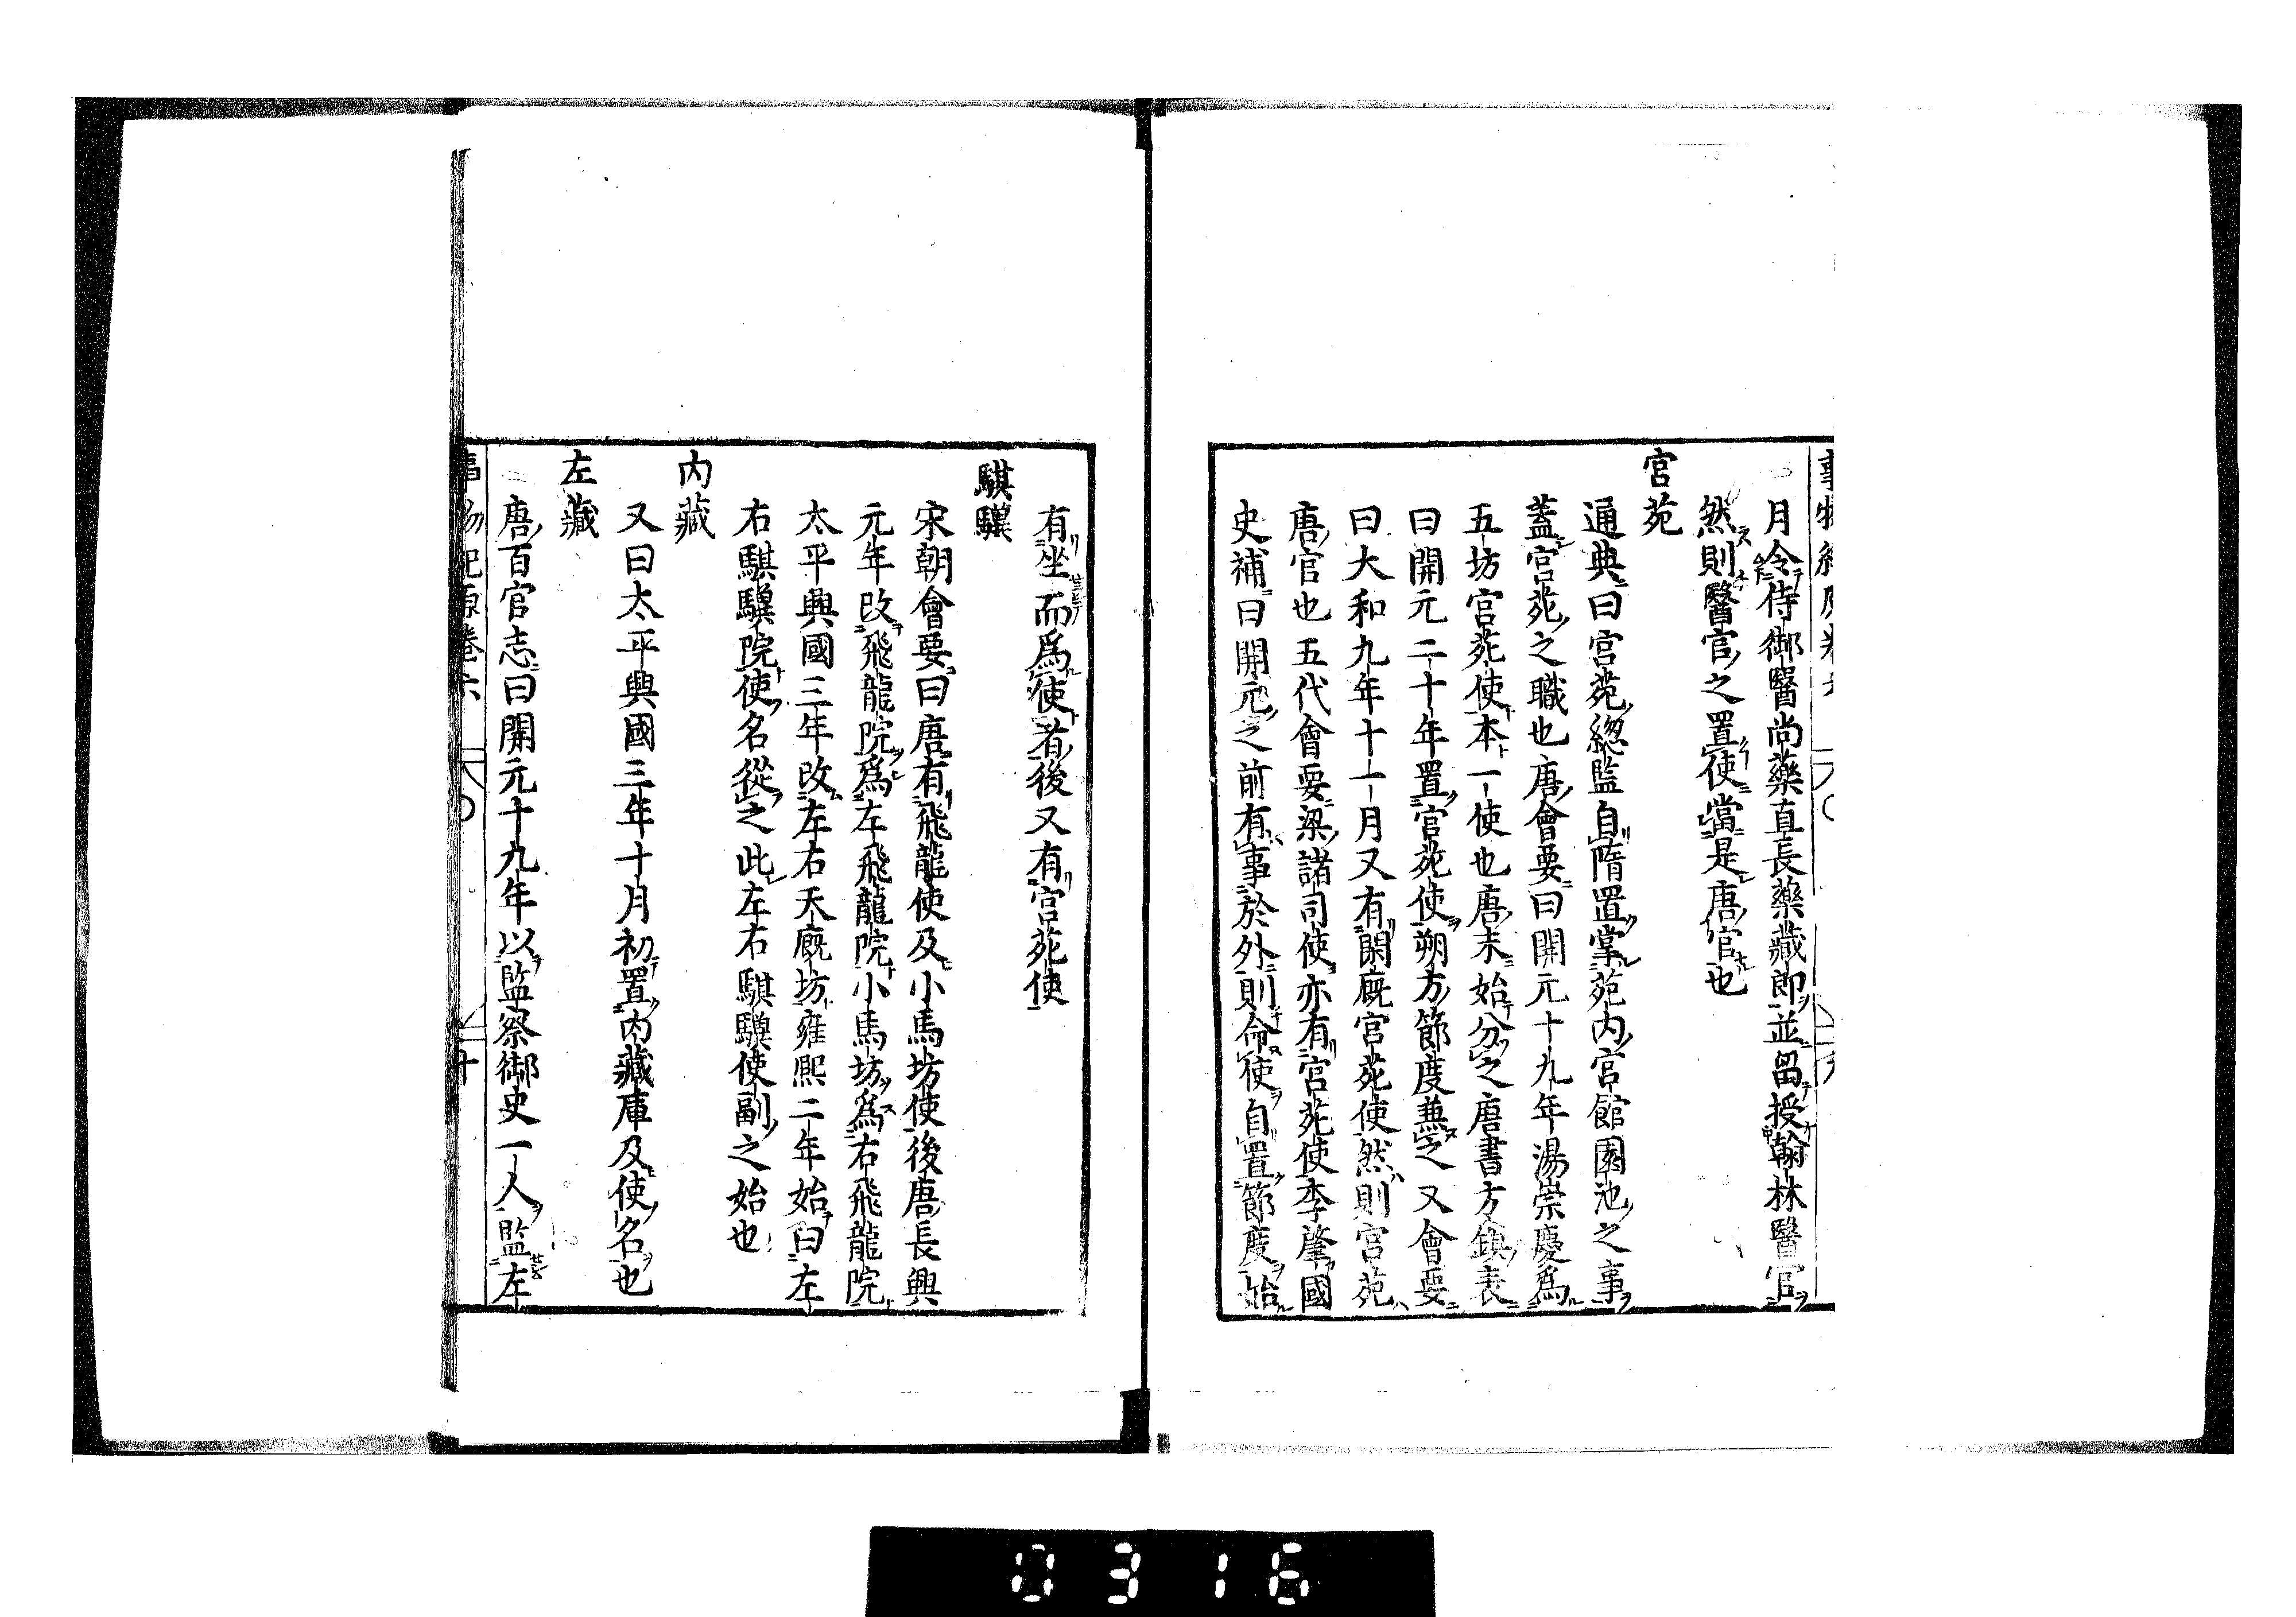 月令侍御醫尚藥直長藥藏郎並留授翰林醫官
然則醫官之置使當是唐官也
宮苑
通典曰宮苑緫監自隋置掌苑内宮館園池之事
蓋宮苑之職也唐會要曰開元十九年湯崇慶爲
五坊宮苑使本一使也唐末始分之唐書方鎮表
曰開元二十年置宮苑使朔方節度兼之又會要
曰大和九年十一月又有閑廐宮苑使然則宮苑
唐官也五代會要梁諸司使亦有宮苑使李肇國
史補曰開元之前有事於外則命使自置節度始
有坐而爲使者後又有宮苑使
騏驥
宋朝會要曰唐有飛龍使及小馬坊使後唐長興
元年改飛龍院爲左飛龍院小馬坊爲右飛龍院
太平興國三年改左右天廐坊雍熙二年始曰左
右騏驥院使名從之此左右騏驥使副之始也
内藏
又曰太平興國三年十月初置内藏庫及使名也
左藏
唐百官志曰開元十九年以監察御史一人監左
事物紀原卷六 十
0316